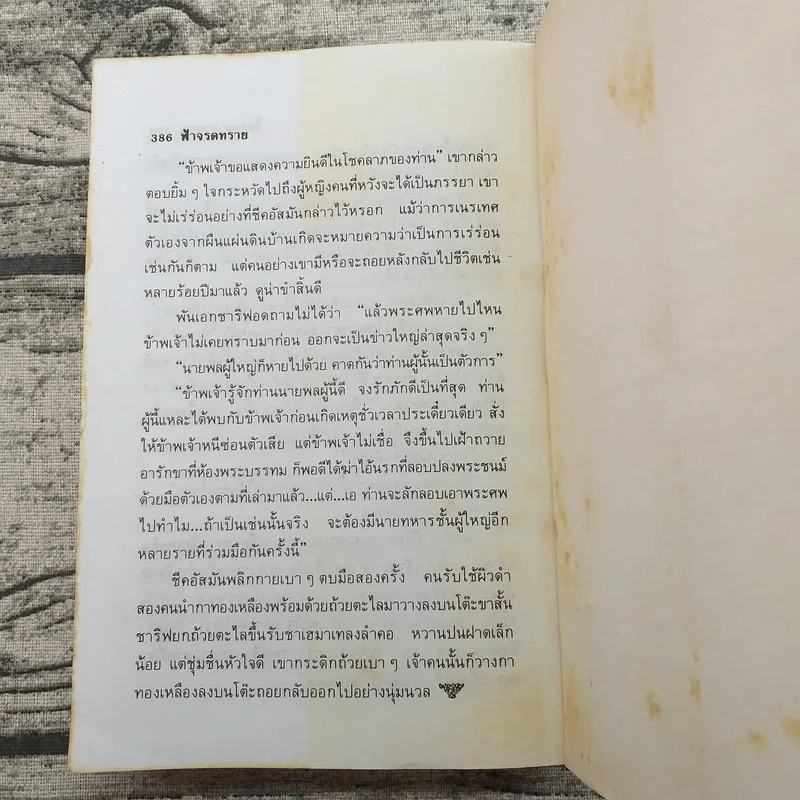 386 ฟ้าจรดทราย
“ข้าพเจ้าขอแสดงความยินดีในโชคลาภของท่าน” เขากล่าว
ตอบยิ้ม ๆ ใจกระหวัดไปถึงผู้หญิงคนที่หวังจะได้เป็นภรรยา เขา
จะไม่เร่ร่อนอย่างที่ชีคอัสมันกล่าวไว้หรอก แม้ว่าการเนรเทศ
ตัวเองจากผืนแผ่นดินบ้านเกิดจะหมายความว่าเป็นการเร่ร่อน
เช่นกันก็ตาม แต่คนอย่างเขามีหรือจะถอยหลังกลับไปชีวิตเช่น
หลายร้อยปีมาแล้ว ดูน่าขำสิ้นดี
พันเอกชาริฟอดถามไม่ได้ว่า “แล้วพระศพหายไปไหน
ข้าพเจ้าไม่เคยทราบมาก่อน ออกจะเป็นข่าวใหญ่ล่าสุดจริง ๆ”
“นายพลผู้ใหญ่ก็หายไปด้วย คาดกันว่าท่านผู้นั้นเป็นตัวการ”
“ข้าพเจ้ารู้จักท่านนายพลผู้นี้ดี จงรักภักดีเป็นที่สุด ท่าน
ผู้นี้แหละได้พบกับข้าพเจ้าก่อนเกิดเหตุชั่วเวลาประเดี๋ยวเดียว สั่ง
ให้ข้าพเจ้าหนีซ่อนตัวเสีย แต่ข้าพเจ้าไม่เชื่อ จึงขึ้นไปเฝ้าถวาย
อารักขาที่ห้องพระบรรทม ก็พอดีได้ฆ่าไอ้นรกที่ลอบปลงพระชนม์
ด้วยมือตัวเองตามที่เล่ามาแล้ว...แต่...เอ ท่านจะลักลอบเอาพระศพ
ไปทำไม...ถ้าเป็นเช่นนั้นจริง จะต้องมีนายทหารชั้นผู้ใหญ่อีก
หลายรายที่ร่วมมือกันครั้งนี้”
ชีคอัสมันพลิกกายเบา ๆ ตบมือสองครั้ง คนรับใช้ผิวดำ
สองคนนำกาทองเหลืองพร้อมด้วยถ้วยตะไลมาวางลงบนโต๊ะขาสั้น
ชาริฟยกถ้วยตะไลขึ้นรับชาเฮมาเทลงลำคอ หวานปนฝาดเล็ก
น้อย แต่ชุ่มชื่นหัวใจดี เขากระดิกถ้วยเบา ๆ เจ้าคนนั้นก็วางกา
ทองเหลืองลงบนโต๊ะถอยกลับออกไปอย่างนุ่มนวล